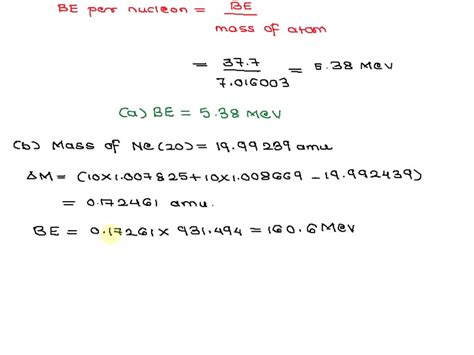 BE per nucleon = BE / mass of atom
= 37.7 / 7.016003 = 5.38 MeV
(a) BE = 5.38 MeV
(b) Mass of Ne(20) = 19.99239 amu
ΔM = (10×1.007825+10×1.008669 - 19.992439)
= 0.172461 amu.
BE = 0.17261 × 931.494 = 160.6 MeV